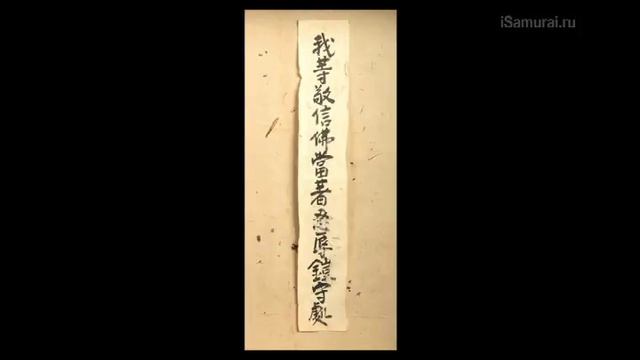 iSamurai.ru
我等敬信佛當著忍辱鎧守處